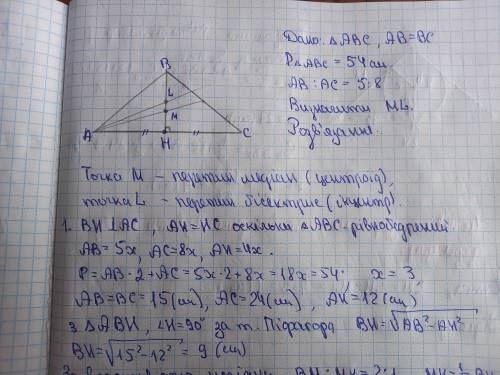 Дано: △ABC, AB=BC
P△ABC = 54 см
AB : AC = 5:8
Визначити ML.
Розв'язання.
B
L
M
A
H
C
Точка M – перетин медіан (центроїд),
точка L – перетин бісектрис (інцентр).
1. BH⊥AC, AH=HC оскільки △ABC-рівнобедрений
AB=5x, AC=8x, AH=4x.
P=AB·2+AC=5x·2+8x=18x=54 x=3
AB=BC=15(см), AC=24(см), AH=12(см)
З △ABH, ∠H=90° за т. Піфагора BH=√AB²-AH²
BH=√15²-12² = 9 (см)
BM:MH=2:1